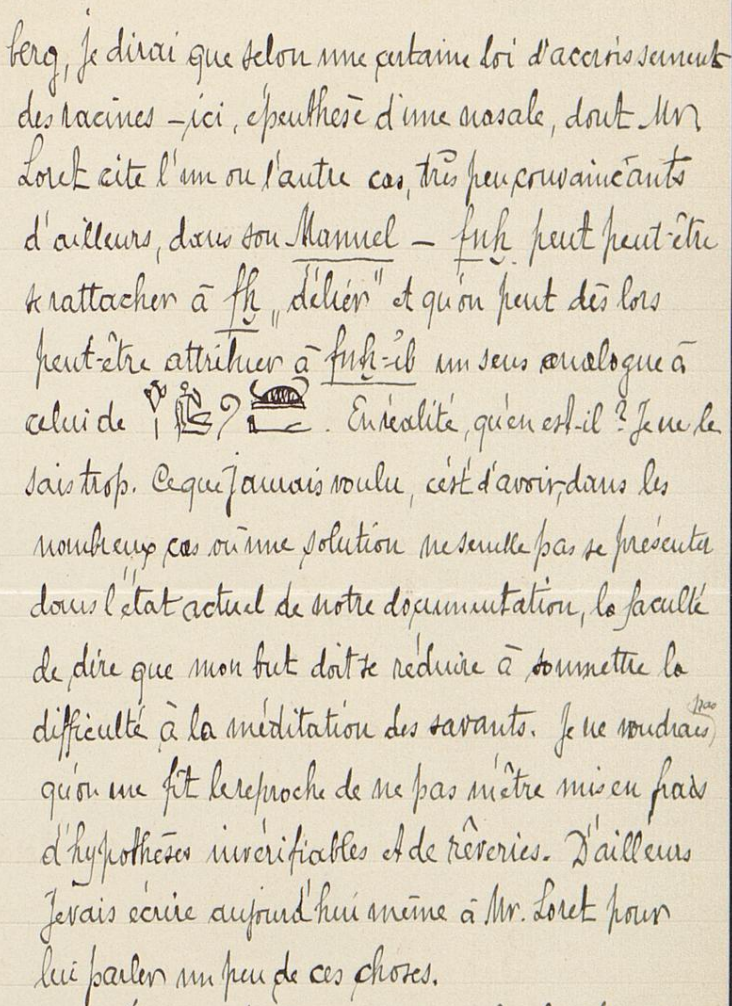 berg, je dirai que selon une certaine loi d'accroissement
des racines – ici, épenthèse d'une nasale, dont Mr.
Loret cite l'un ou l'autre cas, très peu convaincants
d'ailleurs, dans son Manuel – fnḫ peut peut-être
se rattacher à fḫ „délier" et qu'on peut dès lors
peut-être attribuer à fnḫ-ib un sens analogue à
celui de . En réalité, qu'en est-il ? Je ne le
sais trop. Ce que j'aurais voulu, c'est d'avoir, dans les
nombreux cas où une solution ne semble pas se présenter
dans l'état actuel de notre documentation, la faculté
de dire que mon but doit se réduire à soumettre la
difficulté à la méditation des savants. Je ne voudrais pas
qu'on me fît le reproche de ne pas m'être mis en frais
d'hypothèses invérifiables et de rêveries. D'ailleurs
je vais écrire aujourd'hui même à Mr. Loret pour
lui parler un peu de ces choses.